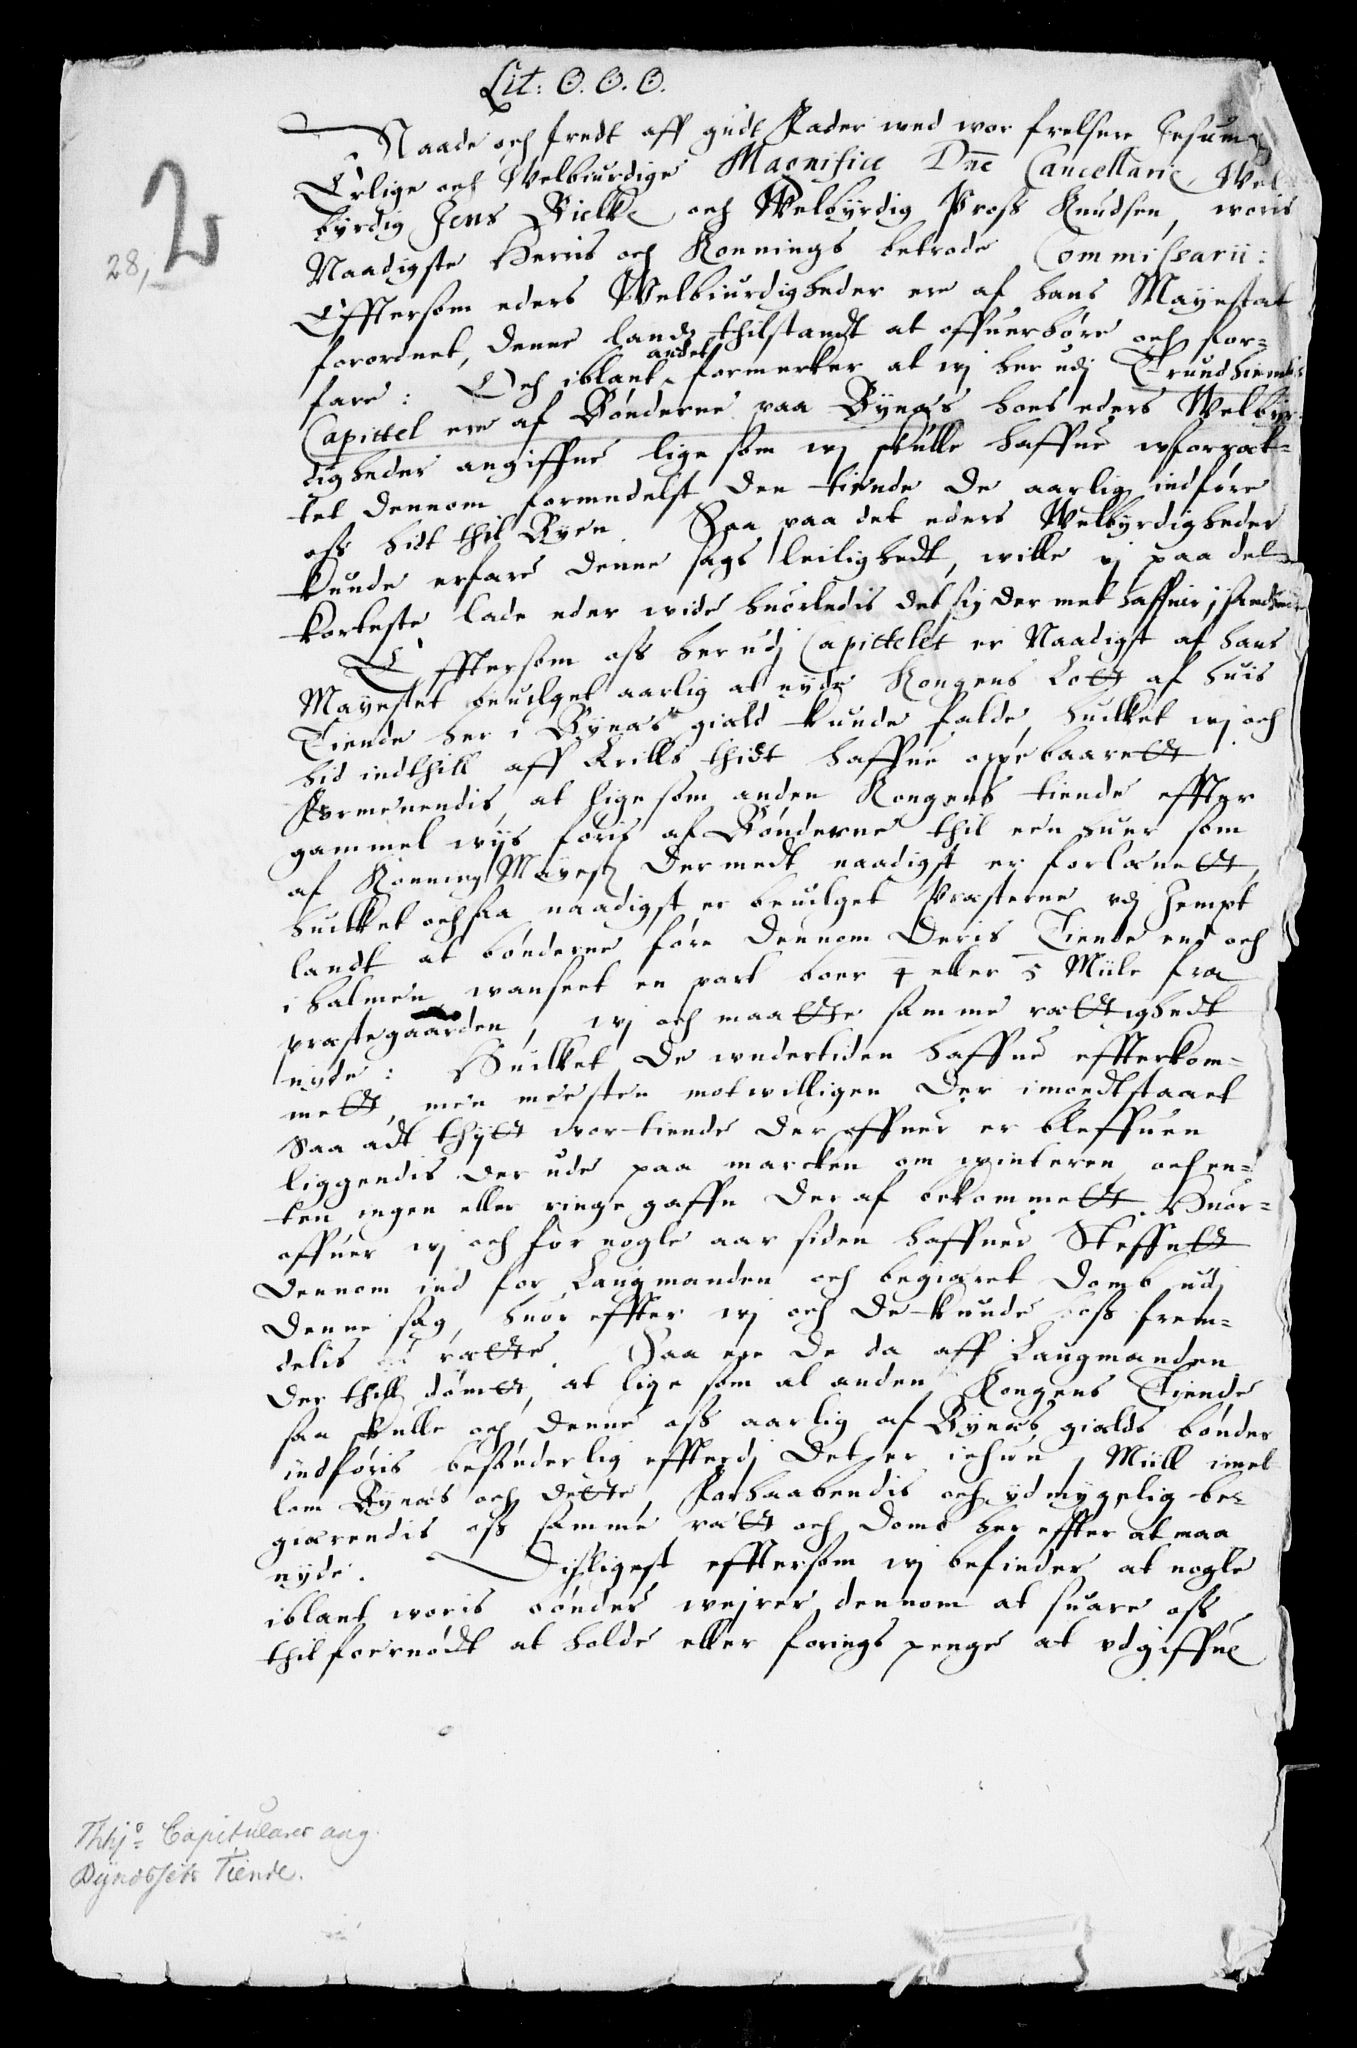 Lit: O. O. O.
Naade och fredt aff gudt Fader wed wor frelsere Jesum
Erlige och Welbiurdige Magnifice Dne Cancellarie, Wel
byrdig Jens Bielke och Welbyrdig Pross Knudsen, woris
Naadigste Herris och Konnings betrode Commissarii:
28, 2
Efftersom eders Welbiurdigheder ere af hans Mayestat
forordnet, denne lands thilstandt at offuerhöre och for-
fare: Och iblant andet formerker at wj her udj Trundhiembs
Capittel ere af Bönderne paa Bynæs hoes eders Welbyr
digheder angiffne lige som wj skulle haffue wforræt-
tet dennom formedelst den tiende de aarlig indföre
oss hidt thil Byen. Saa paa det eders Welbyrdigheder
kunde erfare denne sags leilighedt, wille wj paa det
korteste lade eder wide huorledis det sig der met haffuer i sandhed
Efftersom oss her udj Capittelet er Naadigst af hans
Mayestet beuilget aarlig at nyde Kongens Lott af huis
Tiende her i Bynæs gield kunde falde, huilket wj och
hid indthill aff Arills thidt haffue oppebaarett
Formenendis, at lige som anden Kongens tiende effter
gammel wijs föris af Bönderne thil een huer som
af Konning Mayest dermedt naadigst er forlænett,
huilket ochsaa naadigst er beuilget Præsterne vdj Jempt
landt at bönderne före dennom deris Tiende end och
i halmen, wanseet en part boer 4 eller 5 Miile fra
præstegaarden, wj och maatte samme rættighedt
nyde: Huilket de wndertiden haffue effterkom-
mett, men meesten motwilligen der imodtstaaet
Saa adt thijtt wor tiende der offuer er bleffuen
liggendis der ude paa marcken om winteren, och en-
ten ingen eller ringe gaffn der af bekommett. Huor-
offuer wj och for nogle aar siden haffuer Steffnett
dennom ind for Laugmanden och begiæret domb udj
denne sag, huor effter wj och de kunde oss frem-
delis rætte. Saa ere de da aff Laugmanden
der thill dömt, at lige som al anden Kongens Tiende
saa skulle och denne oss aarlig af Bynæs gields bönder
indföris besönderlig effterdj det er ichun j Miill imel
lom Bynæs och dette, Forhaabendis och ydmygelig be-
giærendis oss samme rætt och domb her effter at maa
nyde. Disligest efftersom wj befinder at nogle
iblant woris bönder wejrer dennom at suare oss
thil foernödt at holde eller forings penge at vdgiffue
Thhj<sup>o</sup> Capitulares ang.
Bynæssets Tiende.